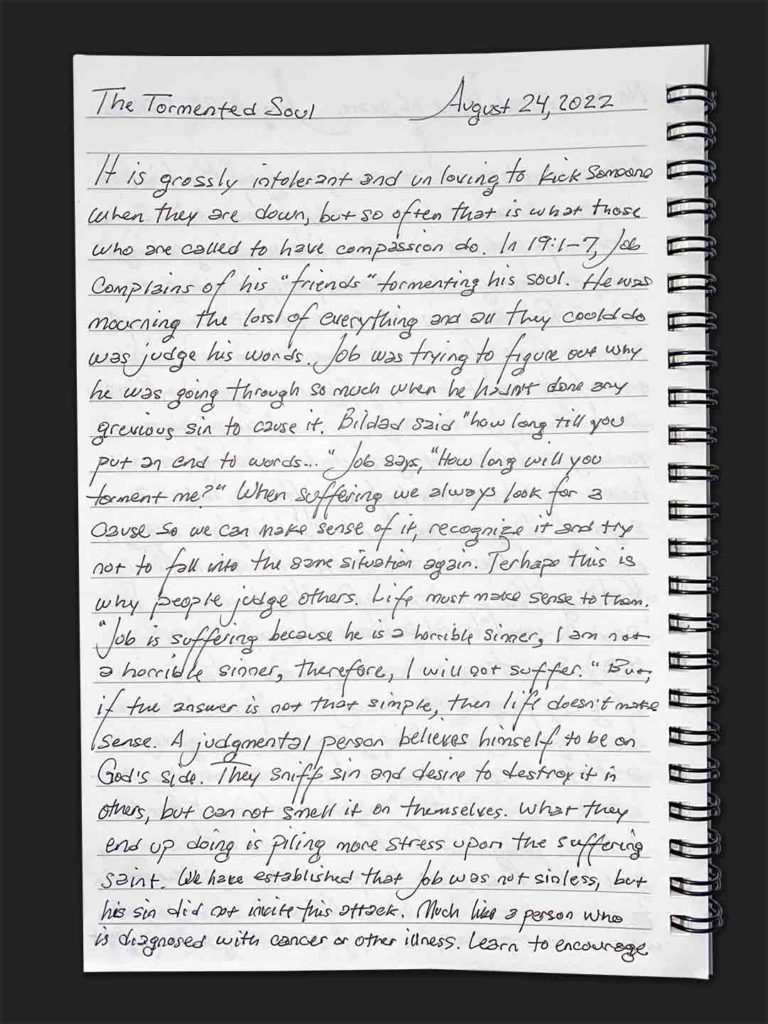 The Tormented Soul August 24, 2022
It is grossly intolerant and un loving to kick someone
when they are down, but so often that is what those
who are called to have compassion do. In 19:1-7, Job
complains of his "friends" tormenting his soul. He was
mourning the loss of everything and all they could do
was judge his words. Job was trying to figure out why
he was going through so much when he hadn't done any
grevious sin to cause it. Bildad said "how long till you
put an end to words..." Job says, "How long will you
torment me?" When suffering we always look for a
cause so we can make sense of it, recognize it and try
not to fall into the same situation again. Perhaps this is
why people judge others. Life must make sense to them.
"Job is suffering because he is a horrible sinner, I am not
a horrible sinner, therefore, I will not suffer." But,
if the answer is not that simple, then life doesn't make
sense. A judgmental person believes himself to be on
God's side. They sniff sin and desire to destroy it in
others, but can not smell it on themselves. What they
end up doing is piling more stress upon the suffering
saint. We have established that Job was not sinless, but
his sin did not incite this attack. Much like a person who
is diagnosed with cancer or other illness. Learn to encourage